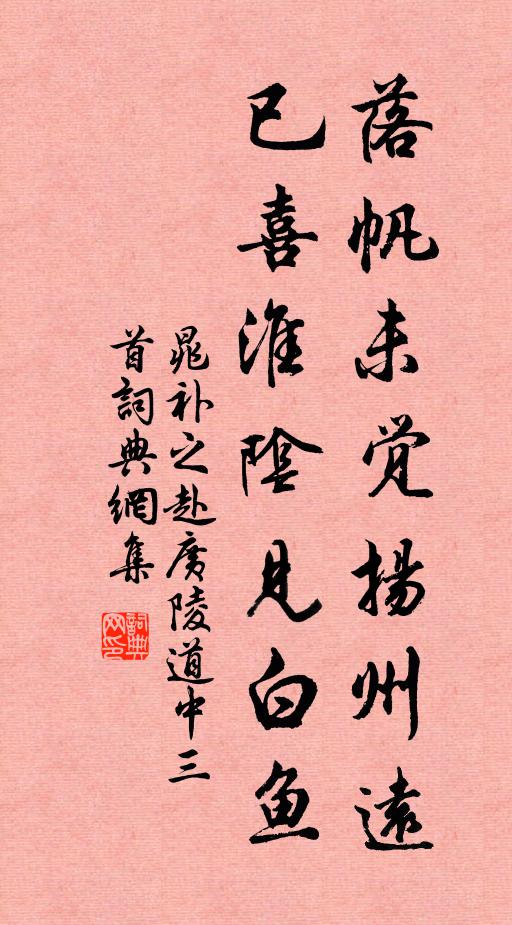 落帆未觉揚州遠
已喜淮陰見白鱼
晁补之赴廣陵道中三
首詞典網集
詞典网印